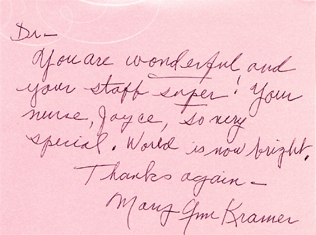 Dr—
You are wonderful and
your staff super! Your
nurse, Joyce, so very
special. World is now bright.
Thanks again—
Mary Ann Kramer